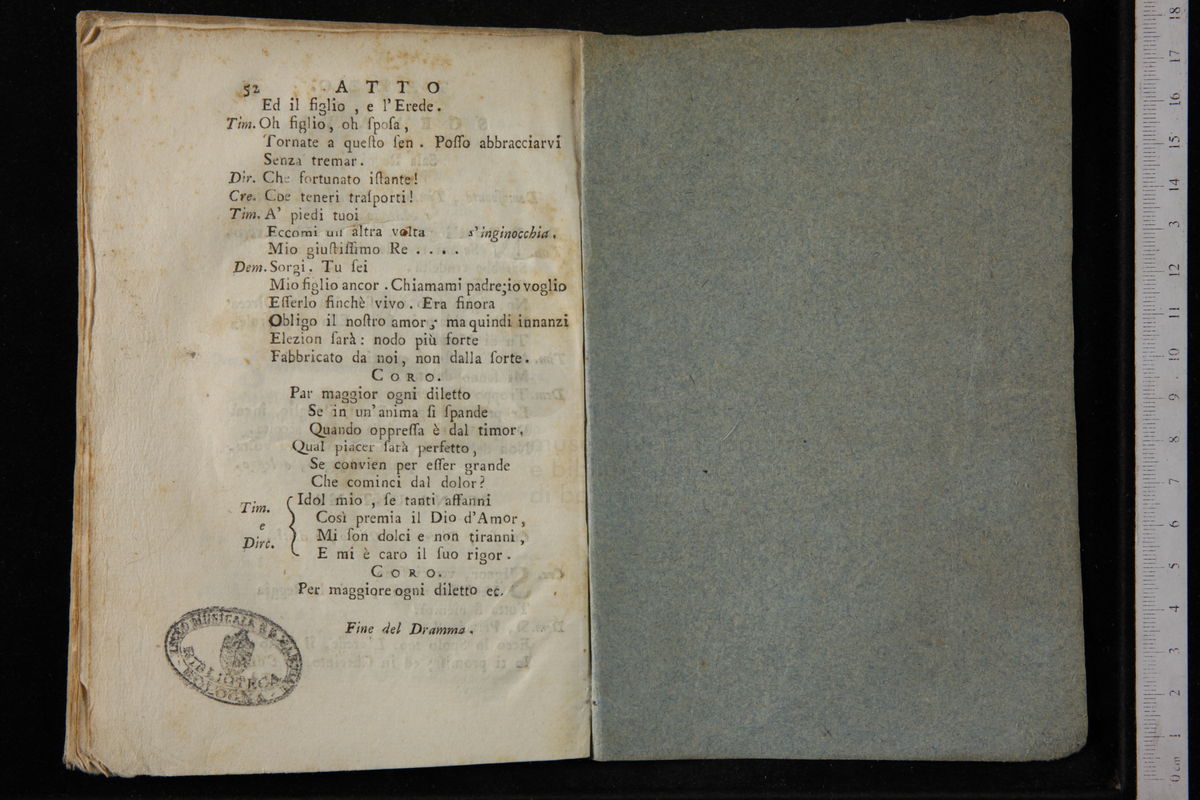 52 ATTO
Ed il figlio , e l'Erede.
Tim. Oh figlio, oh ſpoſa,
Tornate a queſto ſen . Poſſo abbracciarvi
Senza tremar.
Dir. Che fortunato iſtante!
Cre. Coe teneri traſporti!
Tim. A' piedi tuoi
Eccomi un altra volta s'inginocchia.
Mio giuſtiſſimo Re . . . .
Dem. Sorgi. Tu ſei
Mio figlio ancor . Chiamami padre; io voglio
Eſſerlo finchè vivo. Era finora
Obligo il noſtro amor; ma quindi innanzi
Elezion ſarà: nodo più forte
Fabbricato da noi, non dalla ſorte.
CORO.
Par maggior ogni diletto
Se in un'anima ſi ſpande
Quando oppreſſa è dal timor.
Qual piacer ſarà perfetto,
Se convien per eſſer grande
Che cominci dal dolor?
Tim. e Dirc. Idol mio , ſe tanti affanni
Così premia il Dio d'Amor,
Mi ſon dolci e non tiranni,
E mi è caro il ſuo rigor.
CORO.
Per maggiore ogni diletto ec.
Fine del Dramma.
LICEO MUSICALE
BIBLIOTECA
BOLOGNA
0 cm 1 2 3 4 5 6 7 8 9 10 11 12 13 14 15 16 17 18